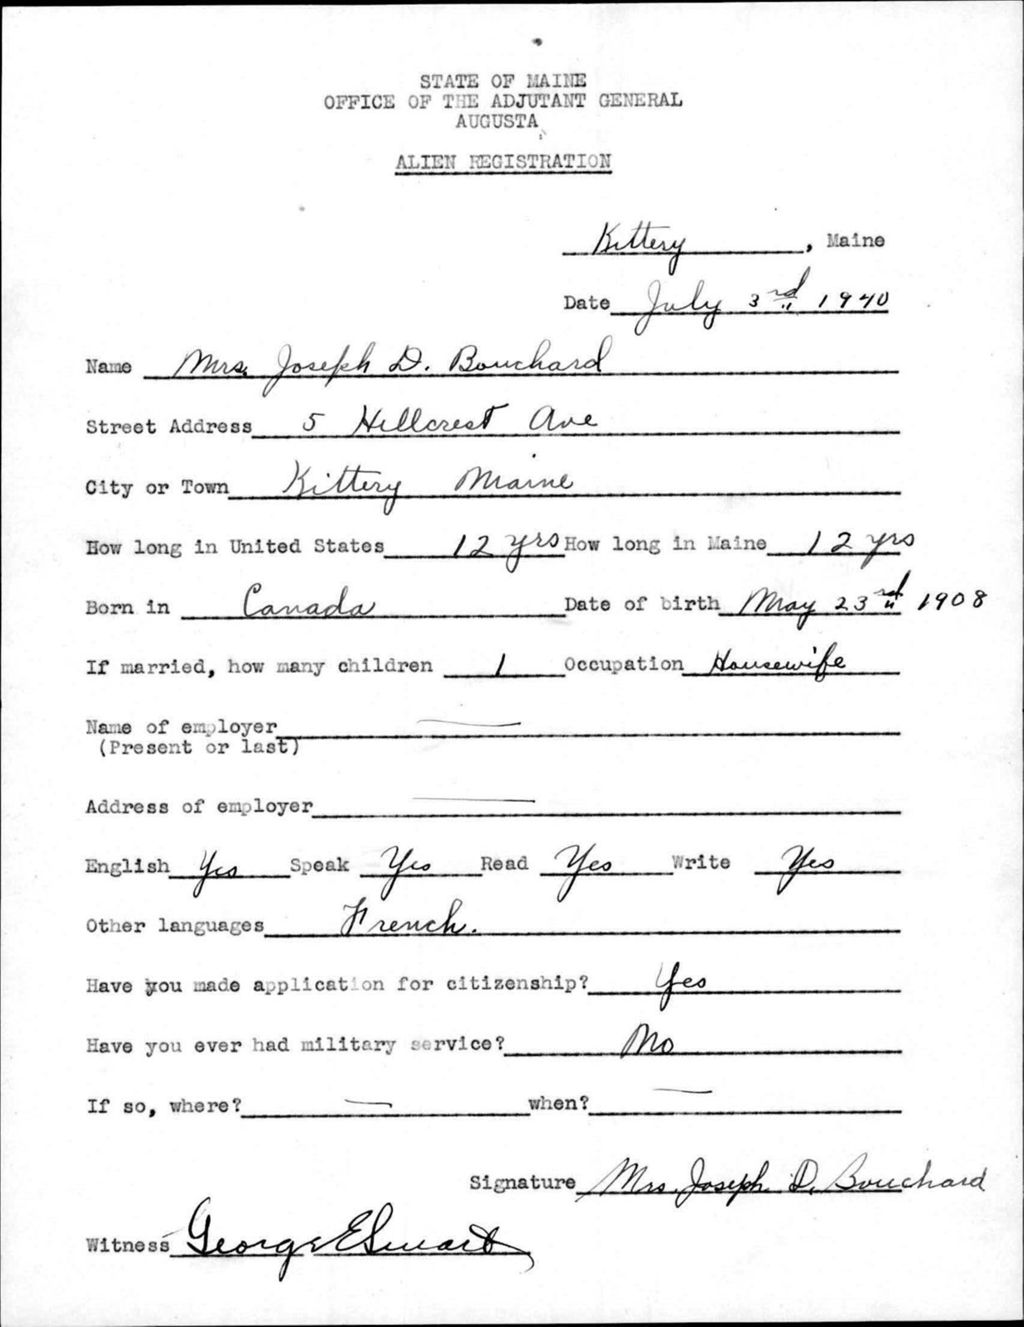 STATE OF MAINE
OFFICE OF THE ADJUTANT GENERAL
AUGUSTA
ALIEN REGISTRATION
Kittery, Maine
Date July 3rd 1940
Name Mrs. Joseph D. Bouchard
Street Address 5 Hillcrest Ave
City or Town Kittery Maine
How long in United States 12 yrs How long in Maine 12 yrs
Born in Canada Date of birth May 23rd 1908
If married, how many children 1 Occupation Housewife
Name of employer —
(Present or last)
Address of employer —
English Yes Speak Yes Read Yes Write Yes
Other languages French.
Have you made application for citizenship? Yes
Have you ever had military service? No
If so, where? — when? —
Signature Mrs. Joseph D. Bouchard
Witness George E Swart